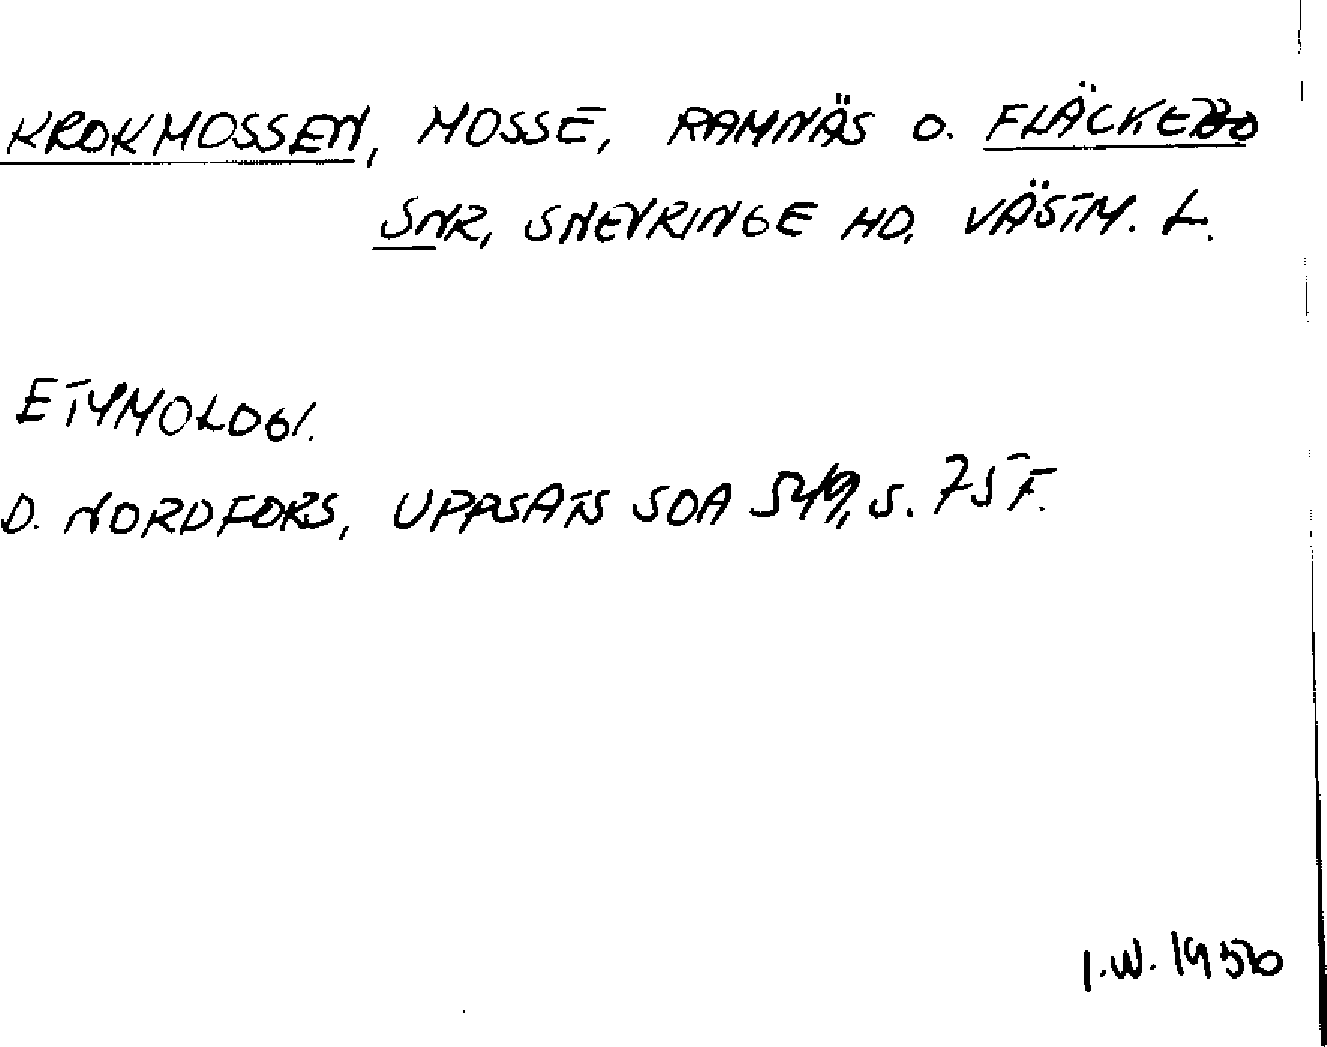 KROKMOSSEN, MOSSE, RAMNÄS O. FLÄCKEBO
SNR, SNEVRINGE HD, VÄSTM. L.
ETYMOLOGI.
D. NORDFORS, UPPSATS SOA 549, S. 75 F.
I.W. 1956